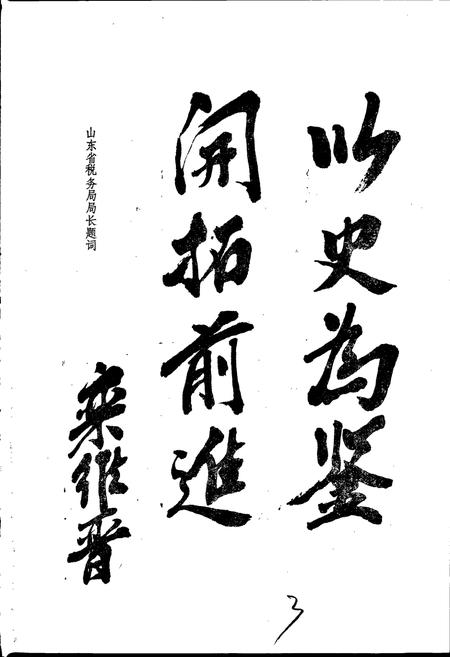 以史为鉴
開拓前進
山东省税务局局长题词
栾维晋
3